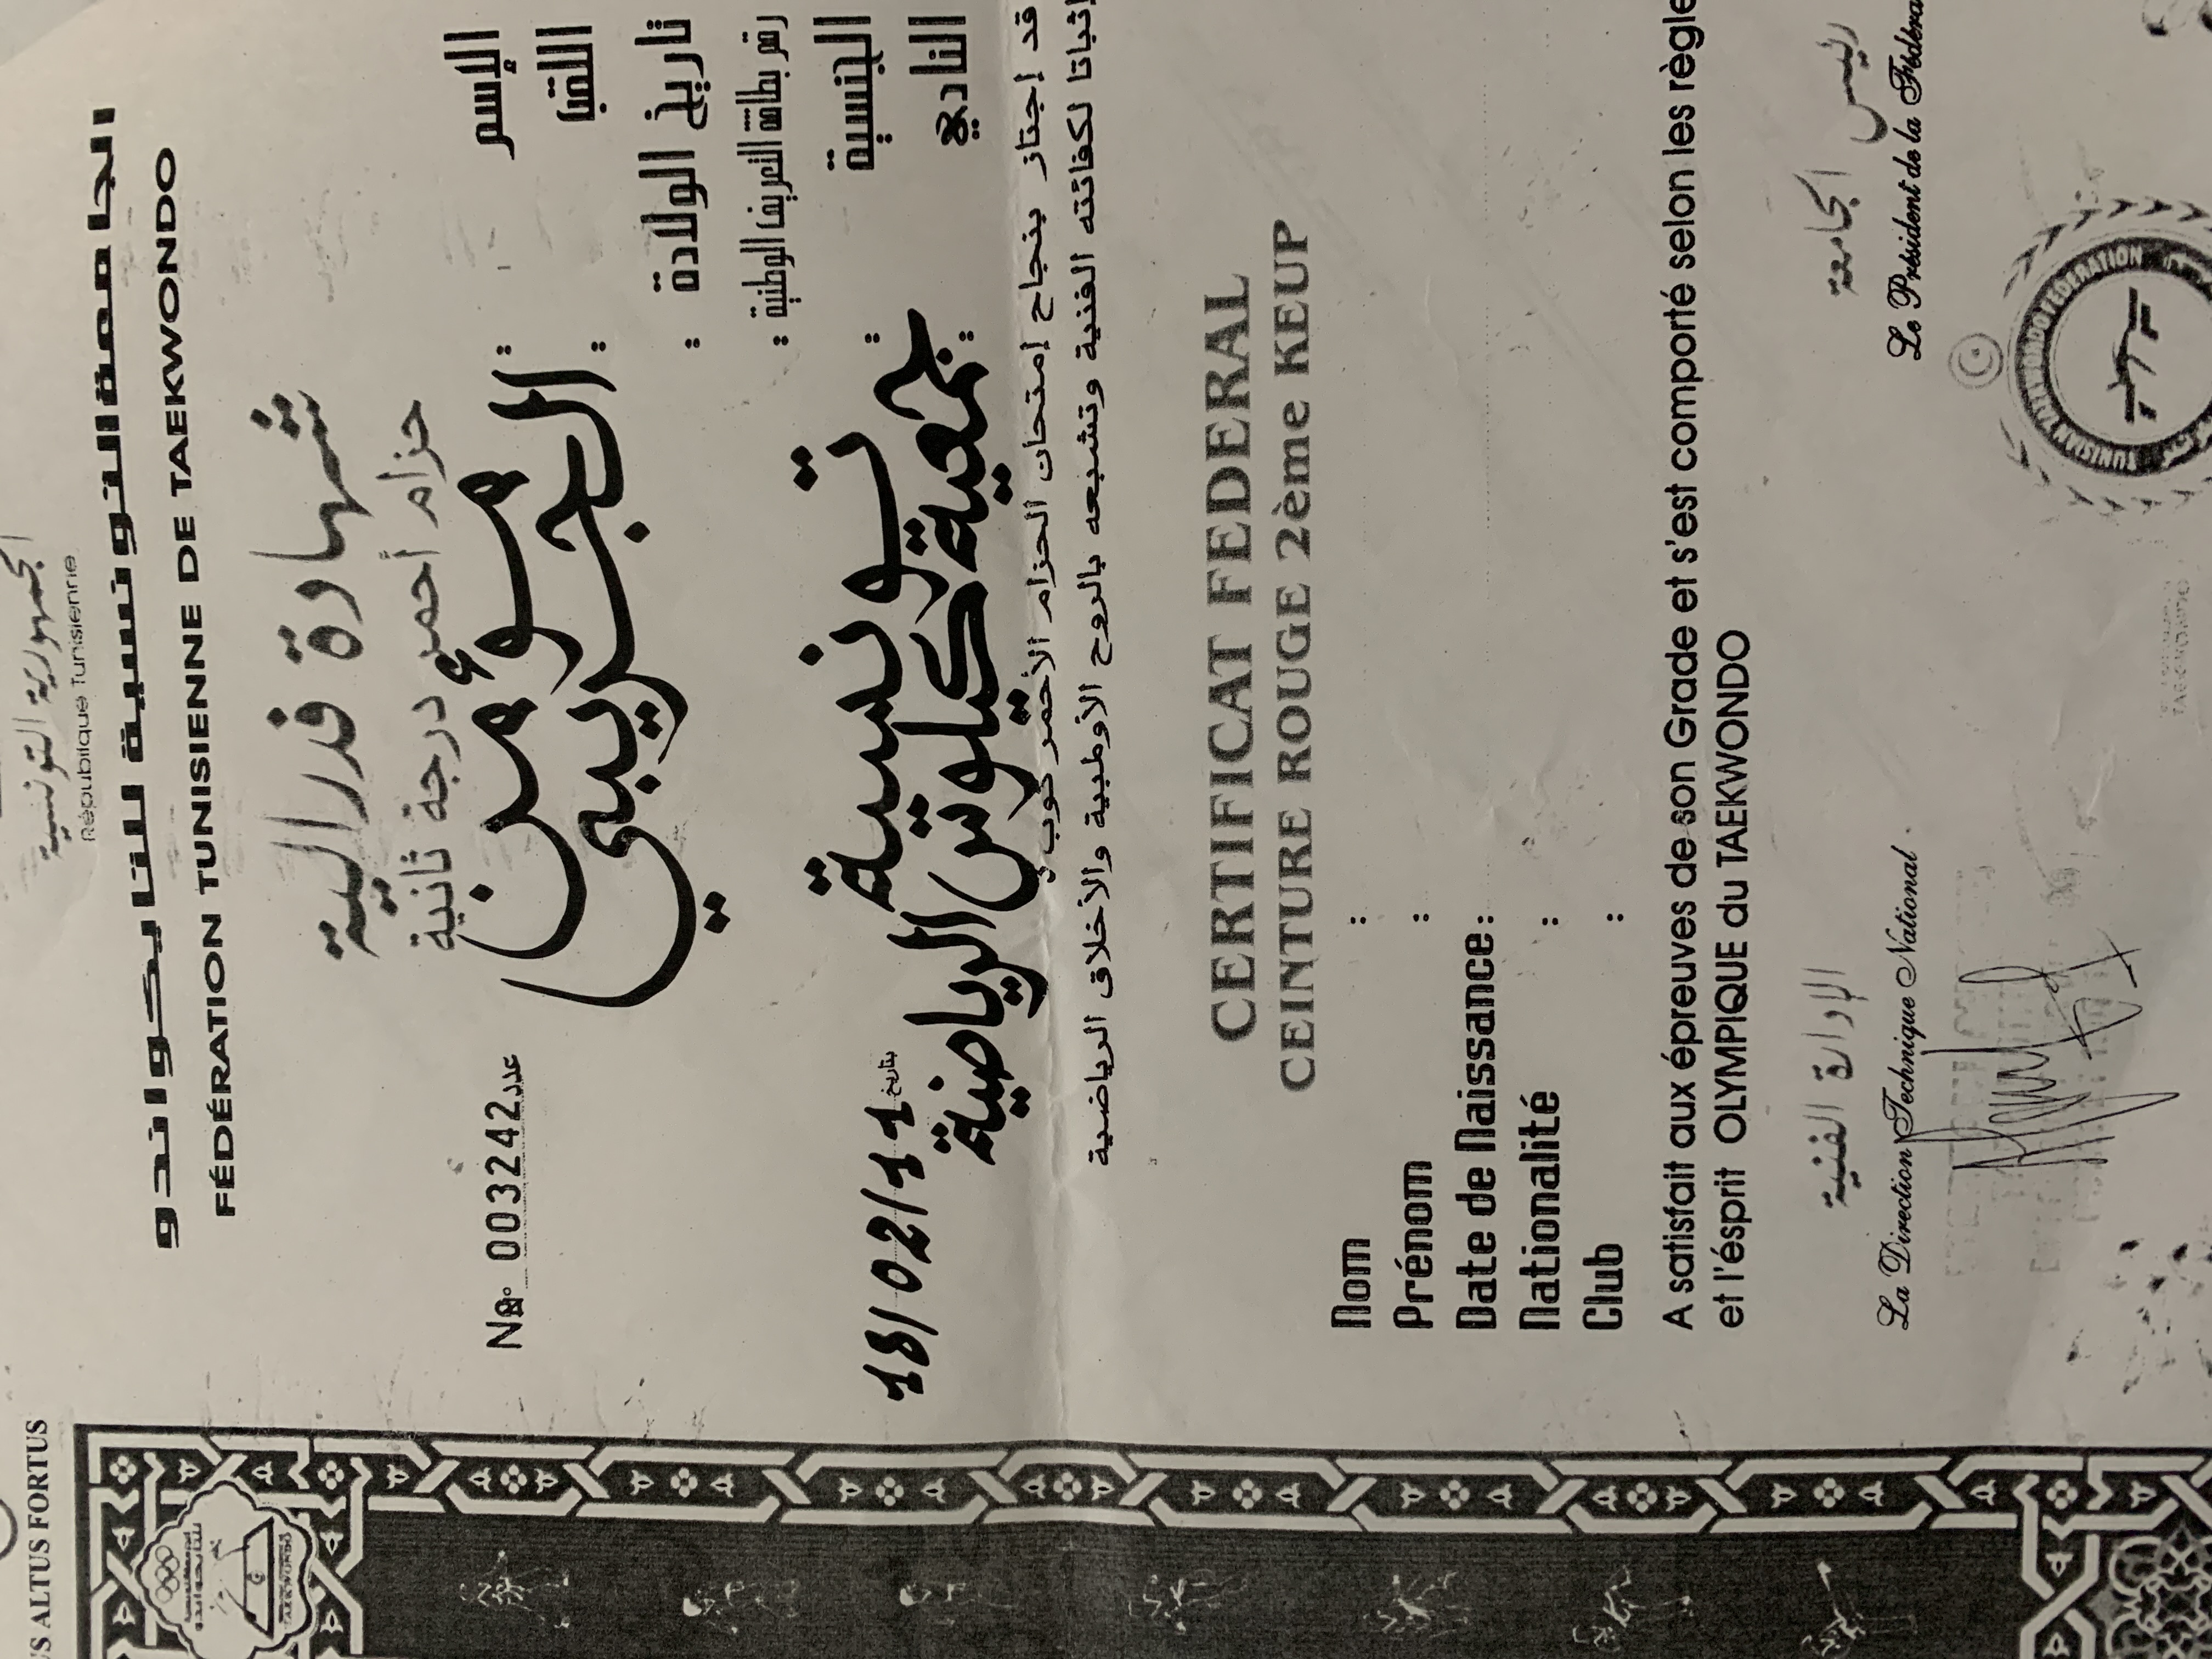 الجمهورية التونسية
République Tunisienne
US ALTUS FORTUS
الجامعة التونسية للتايكواندو
FÉDÉRATION TUNISIENNE DE TAEKWONDO
شهادة فدرالية
حزام أحمر درجة ثانية
No 003242 عدد
الإسم : مؤمن
اللقب : الجريبي
تاريخ الولادة :
رقم بطاقة التعريف الوطنية :
الجنسية : تونسية
النادي : جمعية كيلوتش الرياضية
بتاريخ 18/02/11
قد إجتاز بنجاح إمتحان الحزام الأحمر كوب
إثباتا لكفائته الفنية وتشبعه بالروح الأولمبية والأخلاق الرياضية
CERTIFICAT FEDERAL
CEINTURE ROUGE 2ème KEUP
Nom :
Prénom :
Date de Naissance :
Nationalité :
Club :
A satisfait aux épreuves de son Grade et s'est comporté selon les règle
et l'ésprit OLYMPIQUE du TAEKWONDO
الإدارة الفنية
رئيس الجامعة
La Direction Technique National
Le Président de la Fédéra
TUNISIAN TAEKWONDO FEDERATION